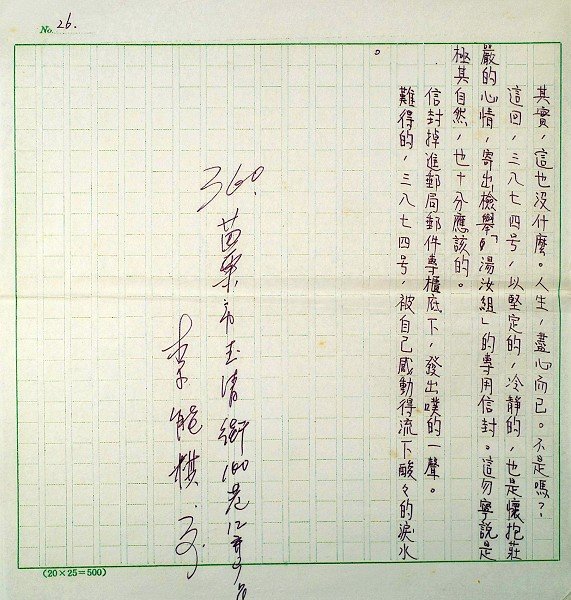 No. 26.
其實，這也沒什麼。人生，盡心而已。不是嗎？
這回，三八七四号，以堅定的，冷靜的，也是懷抱莊
嚴的心情，寄出檢舉「湯汝組」的專用信封。這勿寧說是
極其自然，也十分應該的。
信封掉進郵局郵件專櫃底下，發出噗的一聲。
難得的，三八七四号，被自己感動得流下酸々的淚水
。
360 苗栗市玉清街100巷12弄9号
李 喬
(20×25=500)